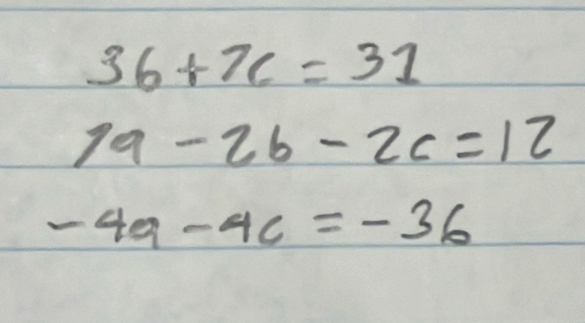 3b + 7c = 31
7a - 2b - 2c = 12
-4a - 4c = -36